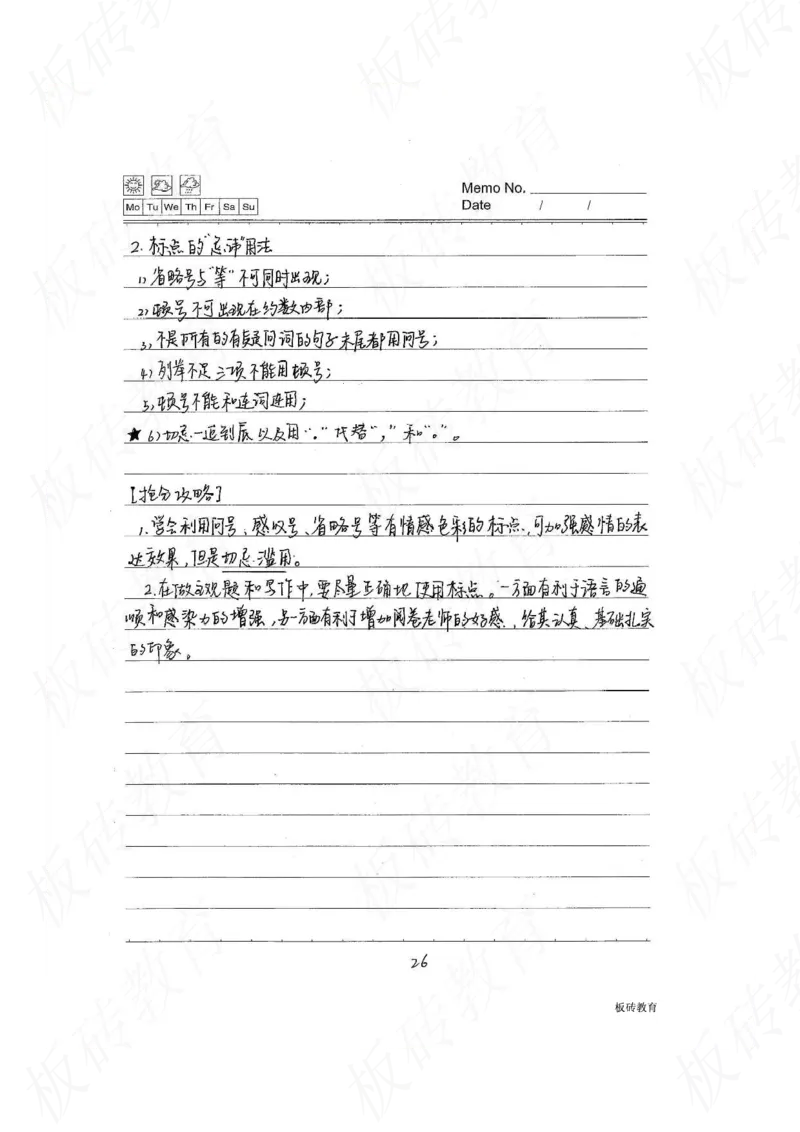 Memo No.
Mo Tu We Th Fr Sa Su
Date / /
2. 标点的"忌讳"用法
1) 省略号与"等"不可同时出现;
2) 顿号不可出现在约数内部;
3) 不是所有的有疑问词的句子末尾都用问号;
4) 列举不足三项不能用顿号;
5) 顿号不能和连词连用;
★ 6) 切忌一逗到底以及用"."代替","和"。"。
[抢分攻略]
1. 学会利用问号、感叹号、省略号等有情感色彩的标点,可加强感情的表
达效果,但是切忌滥用。
2. 在做主观题和写作中,要尽量正确地使用标点。一方面有利于语言的通
顺和感染力的增强,另一方面有利于增加阅卷老师的好感,给其认真、基础扎实
的印象。
26
板砖教育